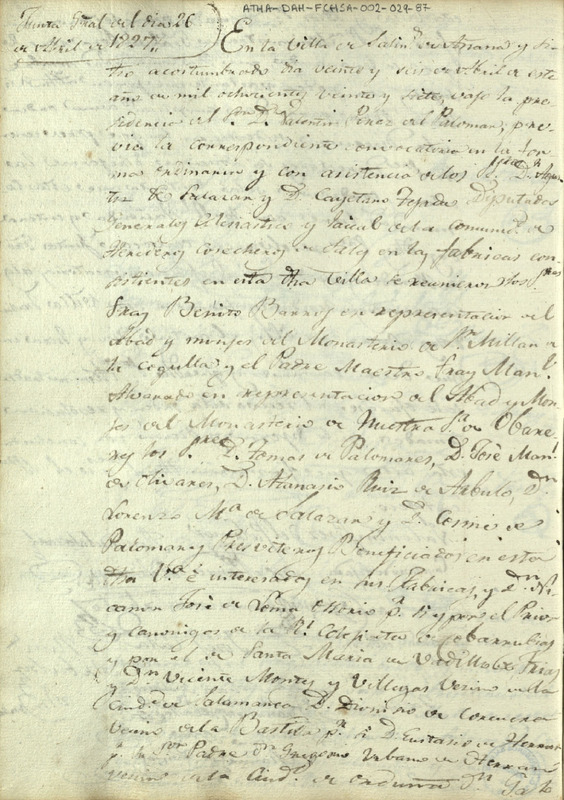 ATHA-DAH-FCHSA-002-029-87
Junta Gñal del dia 26
de Abril de 1827,,
En la Villa de Salin.s de Añana y Si-
tio acostumbrado dia veinte y seis de Abril de este
año de mil ochocientos veinte y siete, vajo la pre-
sidencia del Sor D.n Valentin Perez del Palomar, pre-
via la correspondiente convocatoria en la for-
ma ordinaria y con asistencia de los D.n Agus-
tin de Salazar y D. Cayetano Diputados
Generales Eclesiastico y Secular de la comunid.d de
Herederos cosecheros de Sal en las fabricas con-
sistentes en esta dha Villa se reunieron los
Fray Benito Barrios en representacion del
Abad y monjes del Monasterio de S.n Millan de
la Cogulla, y el Padre Maestro Fray Man.l
Alvarado en representacion del Abad y Mon-
jes del Monasterio de Nuestra S.ra de Obare-
nes los S.res D. Tomas de Palomares, D. José Man.l
de Olivares, D. Atanasio Ruiz de Arbulo, D.n
Lorenzo M.a de Salazar y D. Cosme de
Palomares Presviteros Beneficiados en esta
dha V.a é interesados en sus Fabricas, y D.n Ni-
canor José de Lema Osorio p.r si y por el Prior
y canonigos de la R.l Colejiata de Cobarrubias
y por el de Santa Maria de Vadillo de Frias
D.n Vicente Montes y Villegas Vecino de la
Ciud.d de Salamanca D. Dionisio de
Vecino de la Bastida p.r si D. Eustasio de
p.r su Sor Padre D.n Gregorio Urbano de
vecino de la Ciud.d de Orduña D.n